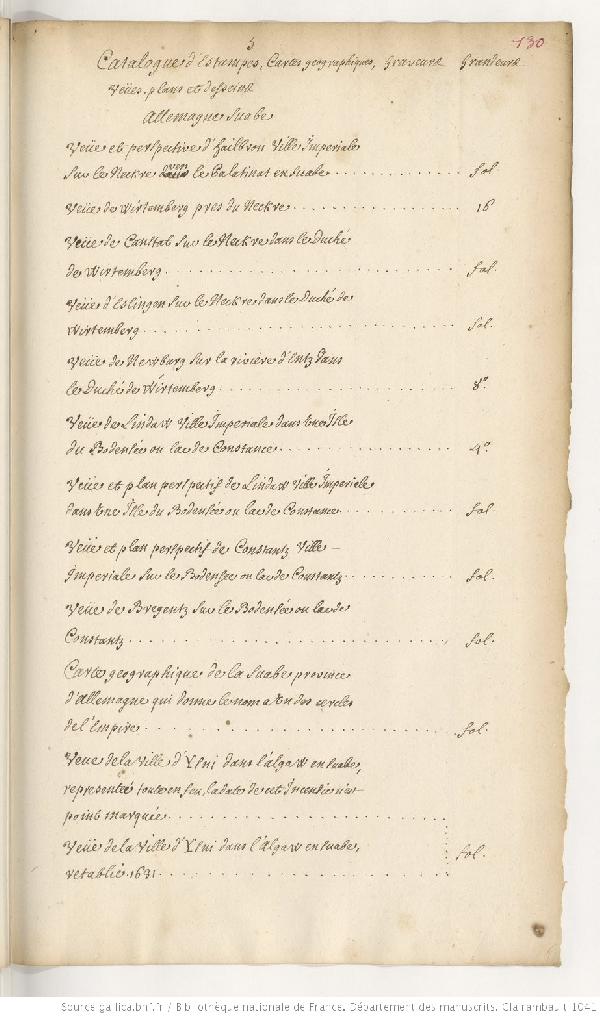 5
130
Catalogue d'Estampes, Cartes geographiques, Graveure Grandeure
Veües, plans et desseins
Allemagne Suabe
Veüe et perspective d'hailbron Ville Imperiale
sur le Neckre vers le Palatinat en suabe fol.
Veüe de Wirtemberg pres du Neckre 16
Veüe de Canstat sur le Neckre dans le Duché
de Wirtemberg fol.
Veüe d'Eslingen sur le Neckre dans le Duché de
Wirtemberg fol.
Veüe de Newburg sur la riviere d'Entz dans
le Duché de Wirtemberg 8°.
Veüe de Lindaw Ville Imperiale dans une Isle
du Bodensée ou lac de Constance 4°.
Veüe et plan perspectif de Lindaw Ville Imperiale
dans une Isle du Bodensée ou lac de Constance fol.
Veüe et plan perspectif de Constantz Ville
Imperiale sur le Bodensée ou lac de Constantz fol.
Veüe de Bregentz sur le Bodensée ou lac de
Constantz fol.
Carte geographique de la Suabe province
d'Allemagne qui donne le nom a un des cercles
de l'Empire fol.
Veüe de la Ville d'Ysni dans l'algaw en suabe,
representée toute en feu, la date de cet Incendie n'est
point marquée
Veüe de la Ville d'Ysni dans l'Algaw en suabe,
retablie 1631 fol.
Source gallica.bnf.fr / Bibliothèque nationale de France. Département des manuscrits. Clairambault 1041